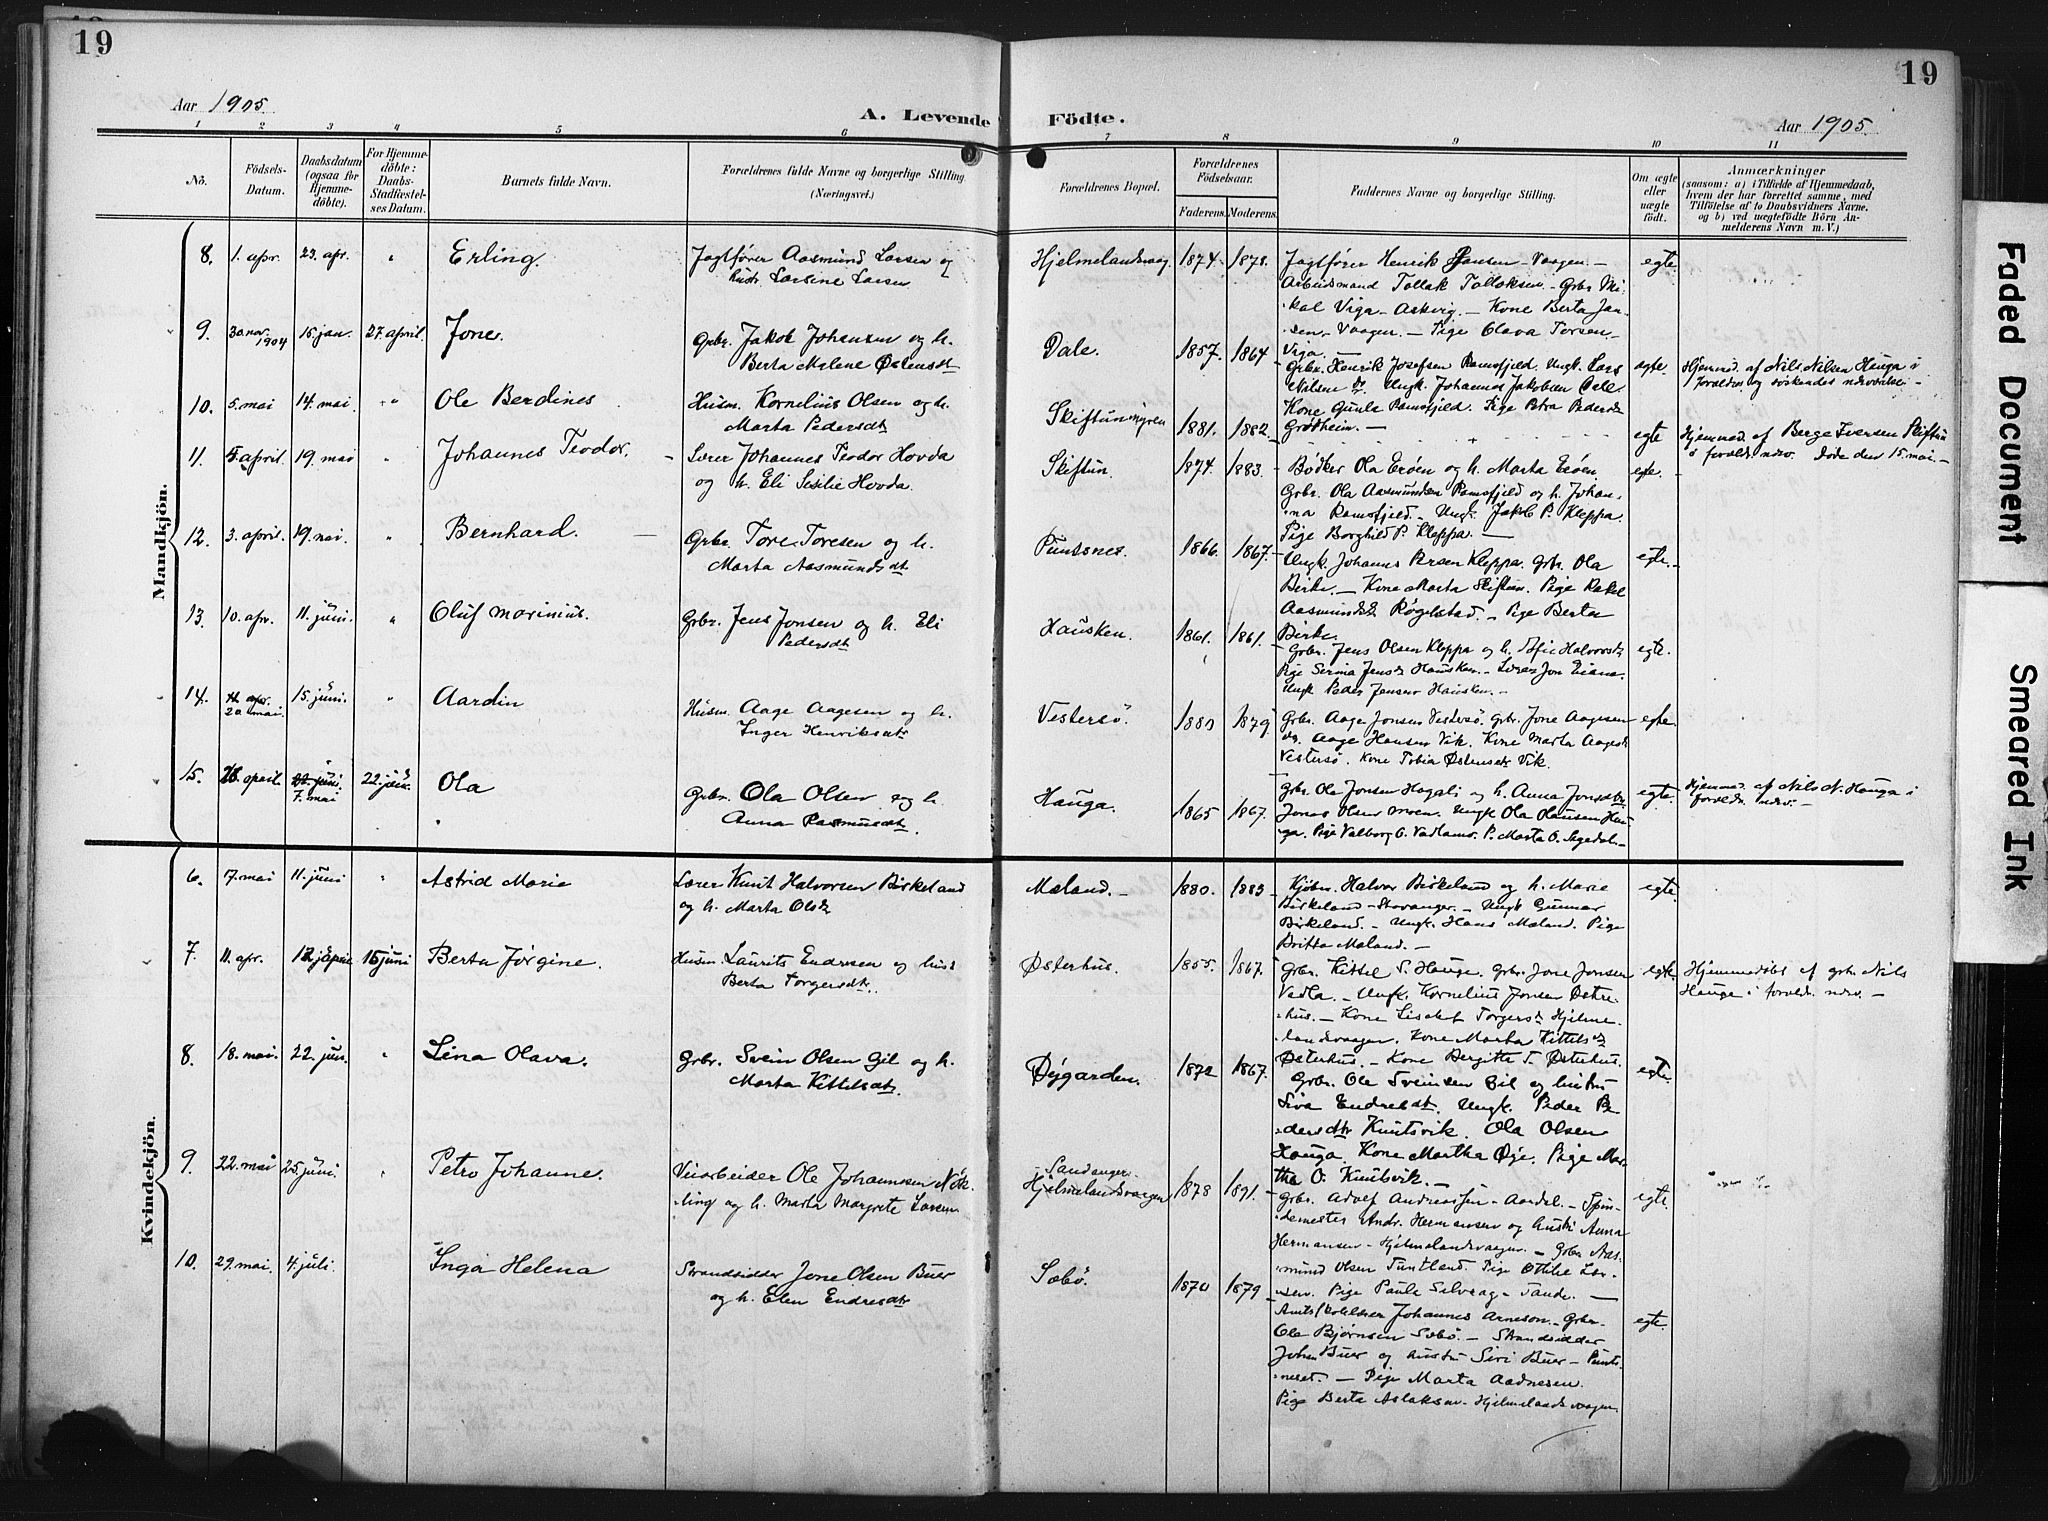 19
19
Aar 1905.
A. Levende Födte.
Aar 1905.
1 2 3 4 5 6 7 8 9 10 11
No.
Födsels-Datum.
Daabsdatum (ogsaa for Hjemmedöbte).
For Hjemmedöbte: Daabs-Stadfæstelses Datum.
Barnets fulde Navn.
Forældrenes fulde Navne og borgerlige Stilling (Næringsvei.)
Forældrenes Bopæl.
Forældrenes Födselsaar.
Faderens. Moderens.
Faddernes Navne og borgerlige Stilling.
Om ægte eller uægte födt.
Anmærkninger
(saasom: a) i Tilfælde af Hjemmedaab,
hvem der har forrettet samme, med
Tilföielse af to Daabsvidners Navne.
og b) ved uægtefödte Börn An-
melderens Navn m. V.)
Mandkjön.
8. 1. apr. 23. apr. " Erling.
Jagtfører Aasmund Larsen og
hustr. Larsine Larsen
Hjelmelandsvaag. 1874. 1878.
Jagtfører Henrik Jansen - Vaagen. -
Arbeidsmand Tollak Tollaksen. - Grbr. Mi-
kal Viga - Askvig. - Kone Berta Jan-
sen - Vaagen. - Pige Olava Torsen -
Viga.
egte.
9. 30 nov. 1904 15 jan. 27. april. Jone.
Grbr. Jakob Johansen og h.
Berta Malene Østensdt
Dale. 1857. 1864
Grbr. Henrik Josefsen Ramsfjeld. Ungk. Lars
Nilsen do. Ungk. Johannes Jakobsen Dale
Kone Gunla Ramsfjeld. Pige Petra Pedersdt
Grødheim. -
egte.
Hjemmed. af Nils Nilsen Hauga i
foreldres og søskendes nærværelse. -
10. 5. mai 14. mai " Ole Berdines
Husm. Kornelius Olsen og h.
Marta Pedersdt
Skiftunmyren 1881. 1882.
egte
Hjemmed. af Berge Iversen Skiftun
i foreldr. nærv. Døde den 15. mai. -
11. 5 april. 19. mai " Johannes Teodor.
Lærer Johannes Teodor Hovda
og h. Eli Sisilie Hovda.
Skiftun. 1874. 1883.
Bødker Ola Erøen og h. Marta Erøen
Grbr. Ola Aasmundsen Ramsfjeld og h. Johan-
na Ramsfjeld. - Ungk. Jakob P. Kleppa.
Pige Borghild P. Kleppa. -
egte. -
12. 3. april. 19. mai. " Bernhard. -
Grbr. Tore Toresen og h.
Marta Aasmundsdt
Puntsnes. 1866. 1867.
Ungk. Johannes Persen Kleppa. Grbr. Ola
Birke. - Kone Marta Skiftun. Pige Rakel
Aasmundsdt Røgelstad. - Pige Berta
Birke.
egte. -
13. 10. apr. 11. juni. " Oluf Marinius.
Grbr. Jens Jonsen og h. Eli
Pedersdt
Hausken. 1861. 1861.
Grbr. Jens Olsen Kleppa og h. Sofie Halvorsdt
Pige Serina Jensdt Hausken. - Lærer Jon Eiane.
Ungk Peder Jensen Hausken. -
egte.
14. 20 mai. 15. juni. " Aardin
Husm. Aage Aagesen og h.
Inger Henriksdt
Vestersø. 1880 1879
Grbr. Aage Jonsen Vestersø. Grbr. Jone Aagesen
do. Aage Hansen Vik. Kone Marta Aagesdt
Vestersø. Kone Tobia Østensdt Vik.
egte
15. 26. april. 22. juni. 7. mai 22. juni. Ola
Grbr. Ola Olsen og h.
Anna Rasmusdt.
Hauga. 1865 1867.
Grbr. Ola Jonsen Hagali og h. Anna Jonsdtr.
Jonas Olsen Moen. Ungk Ola Olausen Hau-
ga. Pige Valborg O. Vadlamo. P. Marta O. Segedal. -
egte.
Hjemmed. af Nils N. Hauga i
foreldr. nærv. -
Kvindekjön.
6. 7. mai 11. juni " Astrid Marie
Lærer Knut Halvorsen Birkeland
og h. Marta Olsdt
Mæland. - 1880. 1883
Kjøbm. Halvor Birkeland og h. Marie
Birkeland - Stavanger. - Ungk Gunnar
Birkeland. - Ungk. Hans Mæland. Pige
Britta Mæland. -
egte.
7. 11. apr. 15 juni Berta Jørgine.
Husm. Laurits Endresen og hust
Berta Torgersdtr.
Østerhus. 1855. 1867.
Grbr. Kittel S. Hauge. Grbr. Jone Jonsen
Vadla. - Ungk. Kornelius Jonsen Østre-
hus. - Kone Lisabet Torgersdt Hjelme-
landsvaagen. Kone Marta Kittelsdt
Østerhus. - Kone Bergitte T. Østerhus.
egte.
Hjemmedøbt af grb. Nils
Hauge i foreldr. nærv. -
8. 18. mai. 22. jun. " Lina Olava.
Grbr. Svein Olsen Gil og h.
Marta Kittelsdt.
Øygarden. 1872 1867.
Grbr. Ole Sveinsen Gil og hustru
Siva Endresdt. Ungk. Peder Pe-
dersdtr Knutsvik. Ola Olsen
Hauga. Kone Martha Øye. Pige Mar-
tha O. Knutsvik. -
egte.
9. 22. mai 25. juni. " Petra Johanne.
Veiarbeider Ole Johannesen Nøk-
ling og h. Marta Margrete Larsen.
Sandanger.
Hjelmelandsvaagen 1878 1891.
Grbr. Adolf Andreassen - Aardal. - Spin-
demester Andr. Hermansen og hustr. Anna
Hermansen - Hjelmelandsvaagen. - Grbr. Aas-
mund Olsen Tuntland. Pige Ottilie Lar-
sen. Pige Paula Selvaag - Tande. -
egte.
10. 29. mai. 4. juli. Inga Helena
Strandsidder Jone Olsen Buer
og h. Elen Endresdtr
Sæbø. 1870 1879
Amtsskolelærer Johannes Arneson. - Grbr.
Ole Bjørnsen Sæbø. - Strandsidder
Johan Buer og hustru Siri Buer - Punts-
neset. - Pige Marta Aadnesen.
Pige Berta Aslaksen - Hjelmelandsvaagen.
egte.
Faded Document
Smeared Ink